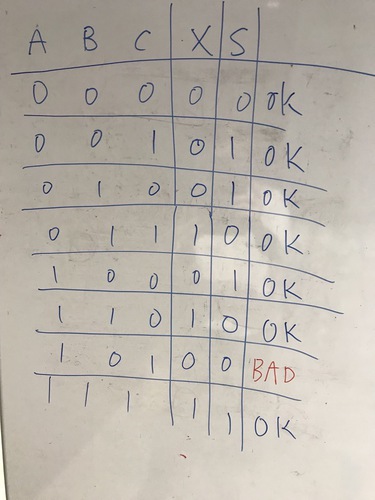 A B C X S
0 0 0 0 0 OK
0 0 1 0 1 OK
0 1 0 0 1 OK
0 1 1 1 0 OK
1 0 0 0 1 OK
1 1 0 1 0 OK
1 0 1 0 0 BAD
1 1 1 1 1 OK